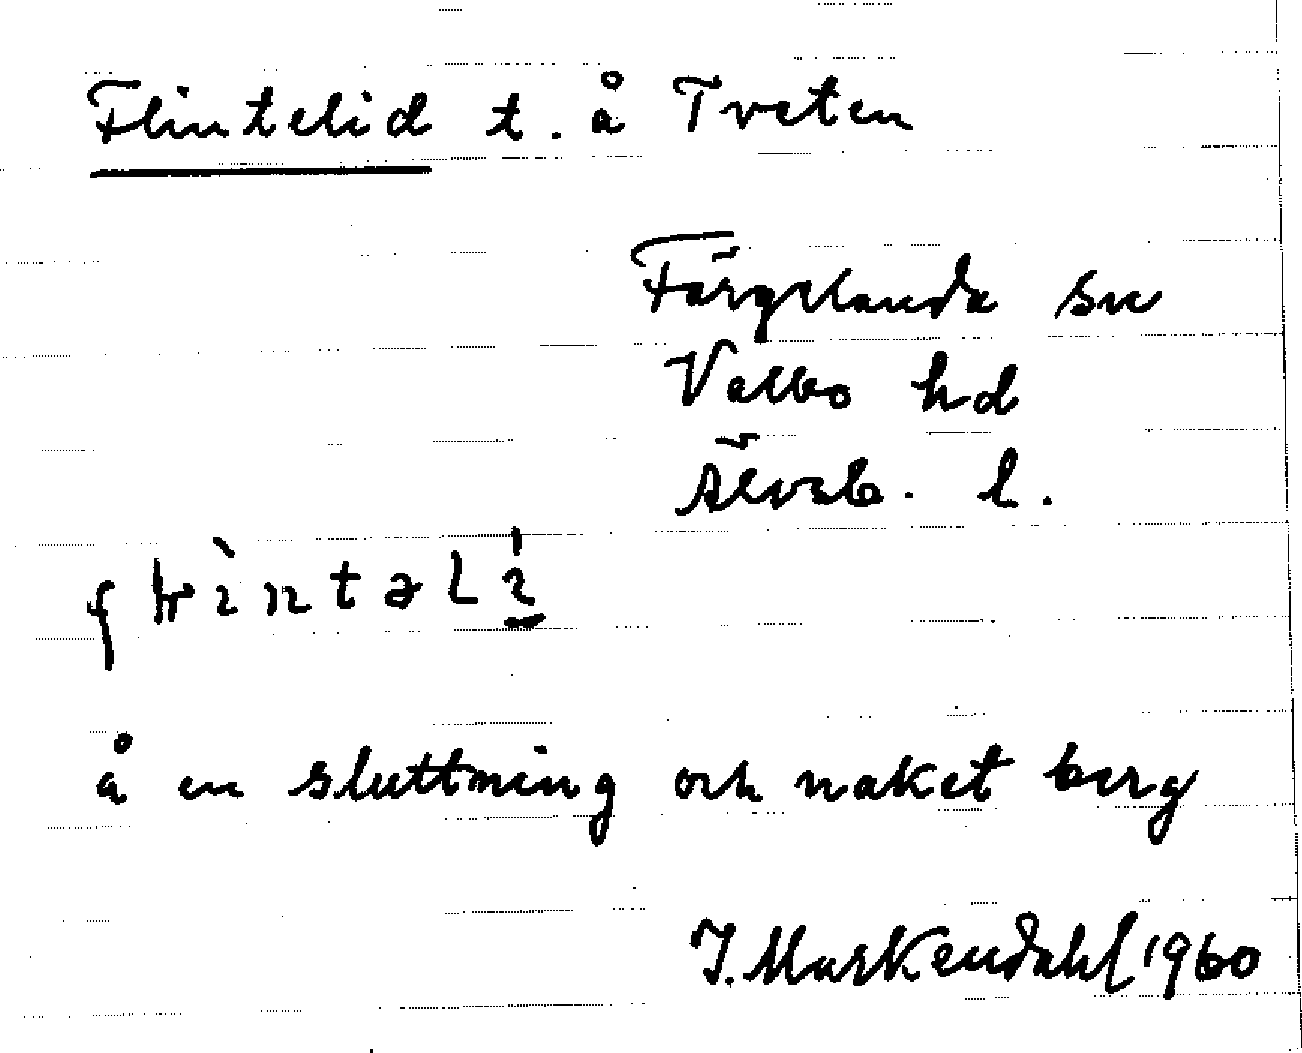 Flintelid t. å Tveten
Färgelanda sn
Valbo hd
Älvsb. l.
å en sluttning och naket berg
J. Markendahl 1960